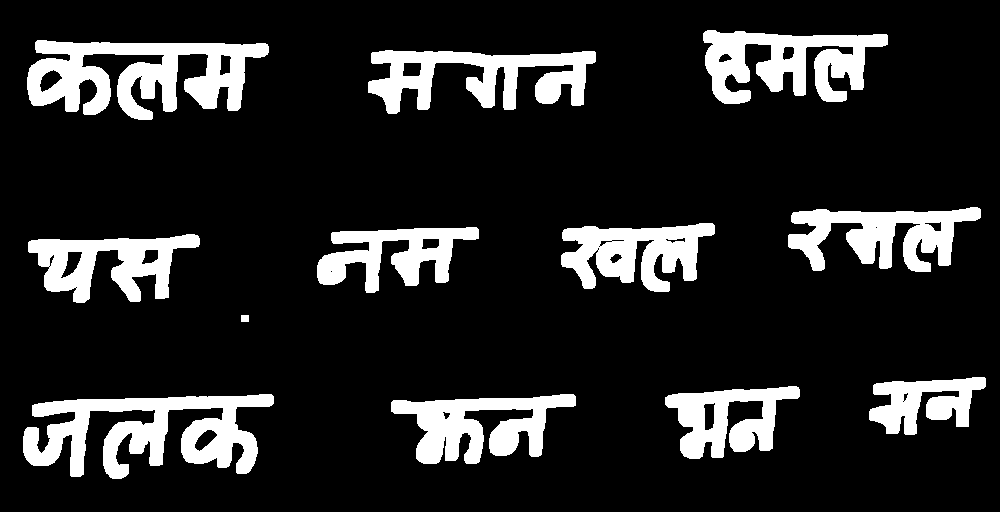 कलम मगन हमल
यस नस खल रमल
जलक फन मन मन